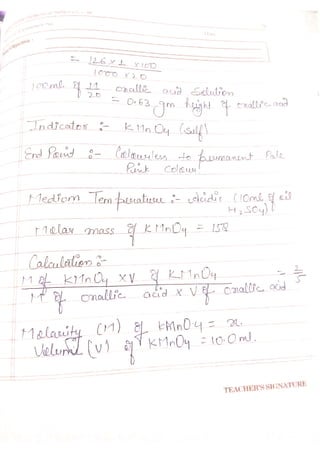 = 12.6 x 1 x 100
1000 x 20
100 ml. of M/20 oxallic acid Solution
= 0.63 gm height of oxallic acid
Indicator :- KMnO4 (self)
End Point :- Colourless to permanent Pale
Pink colour
Medium Temperature :- Acidic (10ml of dil
H2SO4)
Molar mass of KMnO4 = 158
Calculation :-
M of KMnO4 x V of KMnO4 = 2
M of oxallic acid x V of oxallic acid 5
Molarity (M) of KMnO4 = x.
Volume (V) of KMnO4 = 10.0 ml.
TEACHER'S SIGNATURE